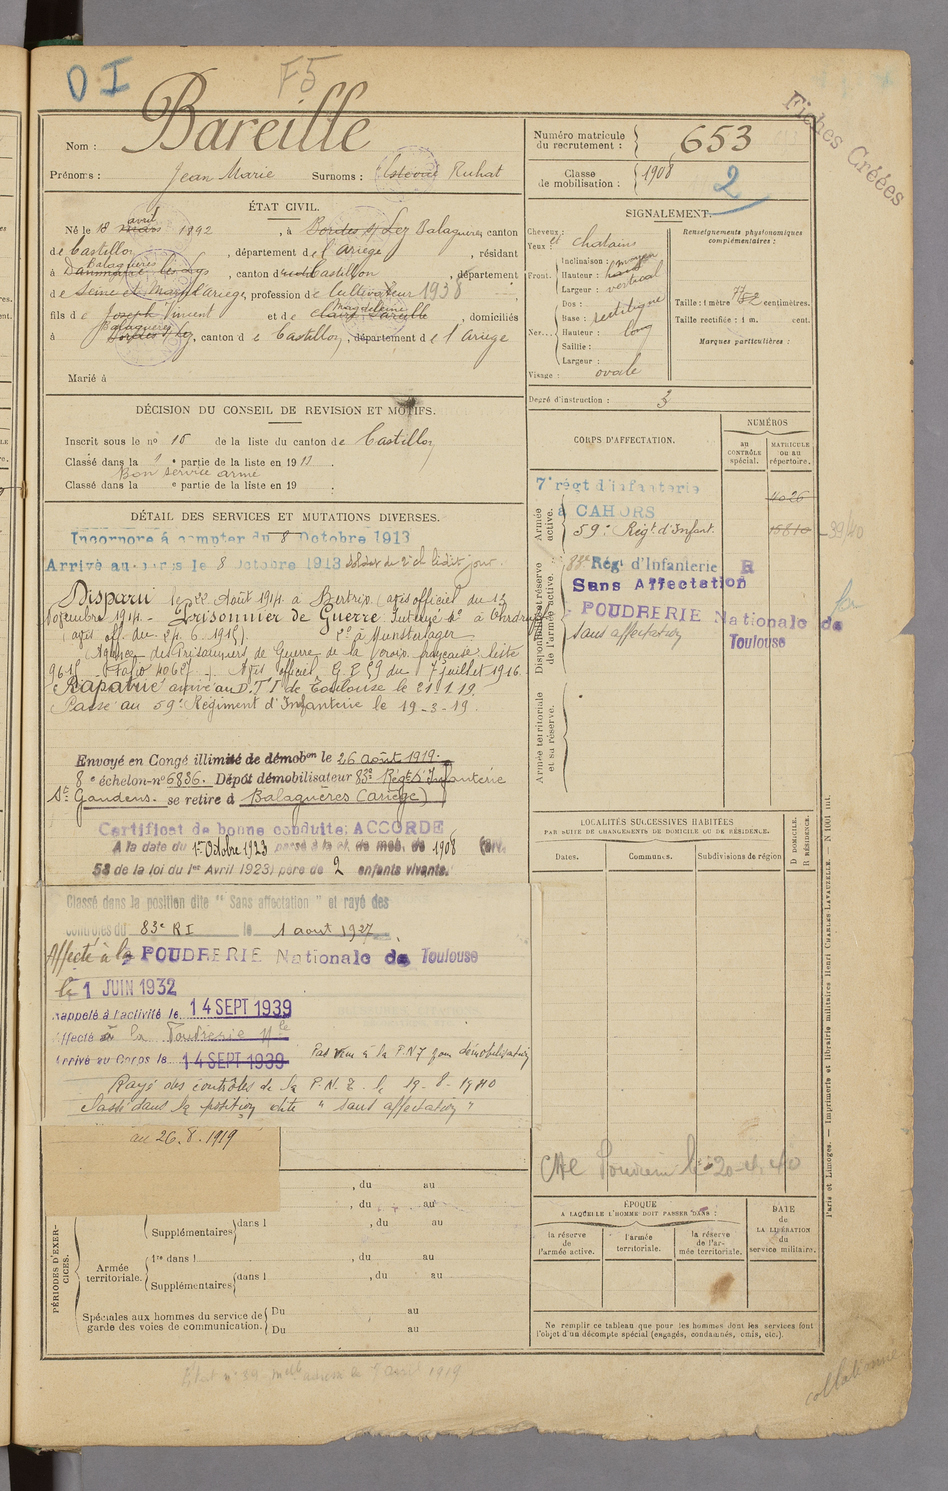 O I
F5
Fiches Créées
Nom : Bareille
Prénoms : Jean Marie Surnoms : Ruhat
Numéro matricule du recrutement : 653
Classe de mobilisation : 1908
2
ÉTAT CIVIL.
Né le 18 mars avril 1892, à Bordes s/ Lez Balaguères, canton
de Castillon, département de l'Ariège, résidant
à Balaguères, canton de Castillon, département
de Seine et Marne l'Ariège, profession de Cultivateur 1938
fils de Joseph Vincent et de Magdeleine, domiciliés
à Balaguères Bordes s/ Lez, canton de Castillon, département de l'Ariège
Marié à
SIGNALEMENT.
Cheveux :
Yeux : et chatains
Front. Inclinaison : moyen
Hauteur :
Largeur : vertical
Nez... Dos :
Base : rectiligne
Hauteur : long
Saillie :
Largeur :
Visage : ovale
Renseignements physionomiques complémentaires :
Taille : 1 mètre centimètres.
Taille rectifiée : 1 m. cent.
Marques particulières :
Degré d'instruction : 3
DÉCISION DU CONSEIL DE REVISION ET MOTIFS.
Inscrit sous le no 10 de la liste du canton de Castillon
Classé dans la 1 e partie de la liste en 1912.
Bon service armé
Classé dans la e partie de la liste en 19 .
DÉTAIL DES SERVICES ET MUTATIONS DIVERSES.
Incorporé à compter du 8 Octobre 1913
Arrivé au corps le 8 Octobre 1913 soldat de 2e cl ledit jour.
Disparu le 22 Août 1914 à Bertrix (avis officiel du 13
Novembre 1914 - Prisonnier de Guerre. Interné 1o à Ohrdruf
(avis off. du 24.6.1915). 2o à Munsterlager
(Agence des Prisonniers de Guerre de la Croix française liste
Avis officiel du 7 juillet 1916.
Rapatrié arrivé au D.T.I de Toulouse le 21.1.19.
Passé au 59e Régiment d'Infanterie le 19-3-19.
Envoyé en Congé illimité de démobon le 26 août 1919.
8 e échelon-no 6836. Dépôt démobilisateur 83e Régt d'Infanterie
St Gaudens. se retire à Balaguères (Ariège)
Certificat de bonne conduite, ACCORDÉ
A la date du 1er Octobre 1923 passé à la cl. de mob. de 1908 (art.
58 de la loi du 1er Avril 1923) père de 2 enfants vivants.
Classé dans la position dite "Sans affectation" et rayé des
contrôles du 83e R I le 1 aout 1927.
Affecté à la POUDRERIE Nationale de Toulouse
le 1 JUIN 1932
Rappelé à l'activité le 14 SEPT 1939
Affecté à la Poudrerie Nle
Arrivé au Corps le 14 SEPT 1939 Pas venu à la P.N.T pour démobilisation
Rayé des contrôles de la P.N.T. le 19-8-1940
Classé dans la position dite "sans affectation"
au 26.8.1919
CORPS D'AFFECTATION.
NUMÉROS
au CONTRÔLE spécial.
MATRICULE ou au répertoire.
Armée active.
7e régt d'infanterie 4026
à CAHORS
59e Régt d'Infant. 15810 39/40
Disponibilité et réserve de l'armée active.
83e Régt d'Infanterie R
Sans Affectation
POUDRERIE Nationale de
Toulouse
sans affectation
Armée territoriale et sa réserve.
LOCALITÉS SUCCESSIVES HABITÉES
PAR SUITE DE CHANGEMENTS DE DOMICILE OU DE RÉSIDENCE.
Dates.
Communes.
Subdivisions de région
D DOMICILE.
R RÉSIDENCE.
PÉRIODES D'EXERCICES.
, du au
, du au
Supplémentaires dans l , du au
Armée territoriale. 1re dans l , du au
Supplémentaires dans l , du au
Spéciales aux hommes du service de garde des voies de communication. Du au
Du au
ÉPOQUE
A LAQUELLE L'HOMME DOIT PASSER DANS :
la réserve de l'armée active.
l'armée territoriale.
la réserve de l'armée territoriale.
DATE de LA LIBÉRATION du service militaire.
Ne remplir ce tableau que pour les hommes dont les services font
l'objet d'un décompte spécial (engagés, condamnés, omis, etc.).
Paris et Limoges. — Imprimerie et librairie militaires Henri CHARLES-LAVAUZELLE. — N 1001 int.
collationné